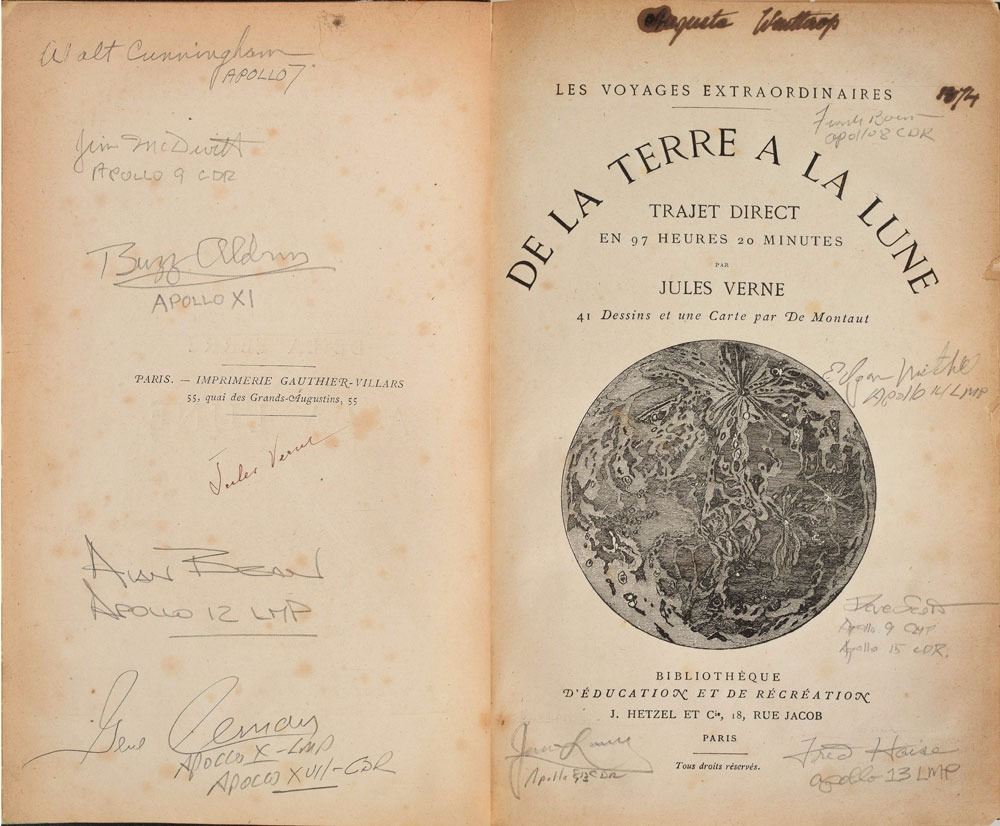 Walt Cunningham
APOLLO 7.
Jim McDivitt
APOLLO 9 CDR
Buzz Aldrin
APOLLO XI
PARIS. — IMPRIMERIE GAUTHIER-VILLARS
55, quai des Grands-Augustins, 55
Jules Verne
ALAN BEAN
APOLLO 12 LMP
Gene Cernan
APOLLO X-LMP
APOLLO XVII-CDR
Augusta Winthrop
1874
LES VOYAGES EXTRAORDINAIRES
Frank Borman
Apollo 8 CDR
DE LA TERRE A LA LUNE
TRAJET DIRECT
EN 97 HEURES 20 MINUTES
PAR
JULES VERNE
41 Dessins et une Carte par De Montaut
Edgar Mitchell
Apollo 14 LMP
Dave Scott
Apollo 9 CMP
Apollo 15 CDR.
BIBLIOTHÈQUE
D'ÉDUCATION ET DE RÉCRÉATION
J. HETZEL ET Cie, 18, RUE JACOB
PARIS
Tous droits réservés.
James Lovell
Apollo 8,13 CDR
Fred Haise
Apollo 13 LMP